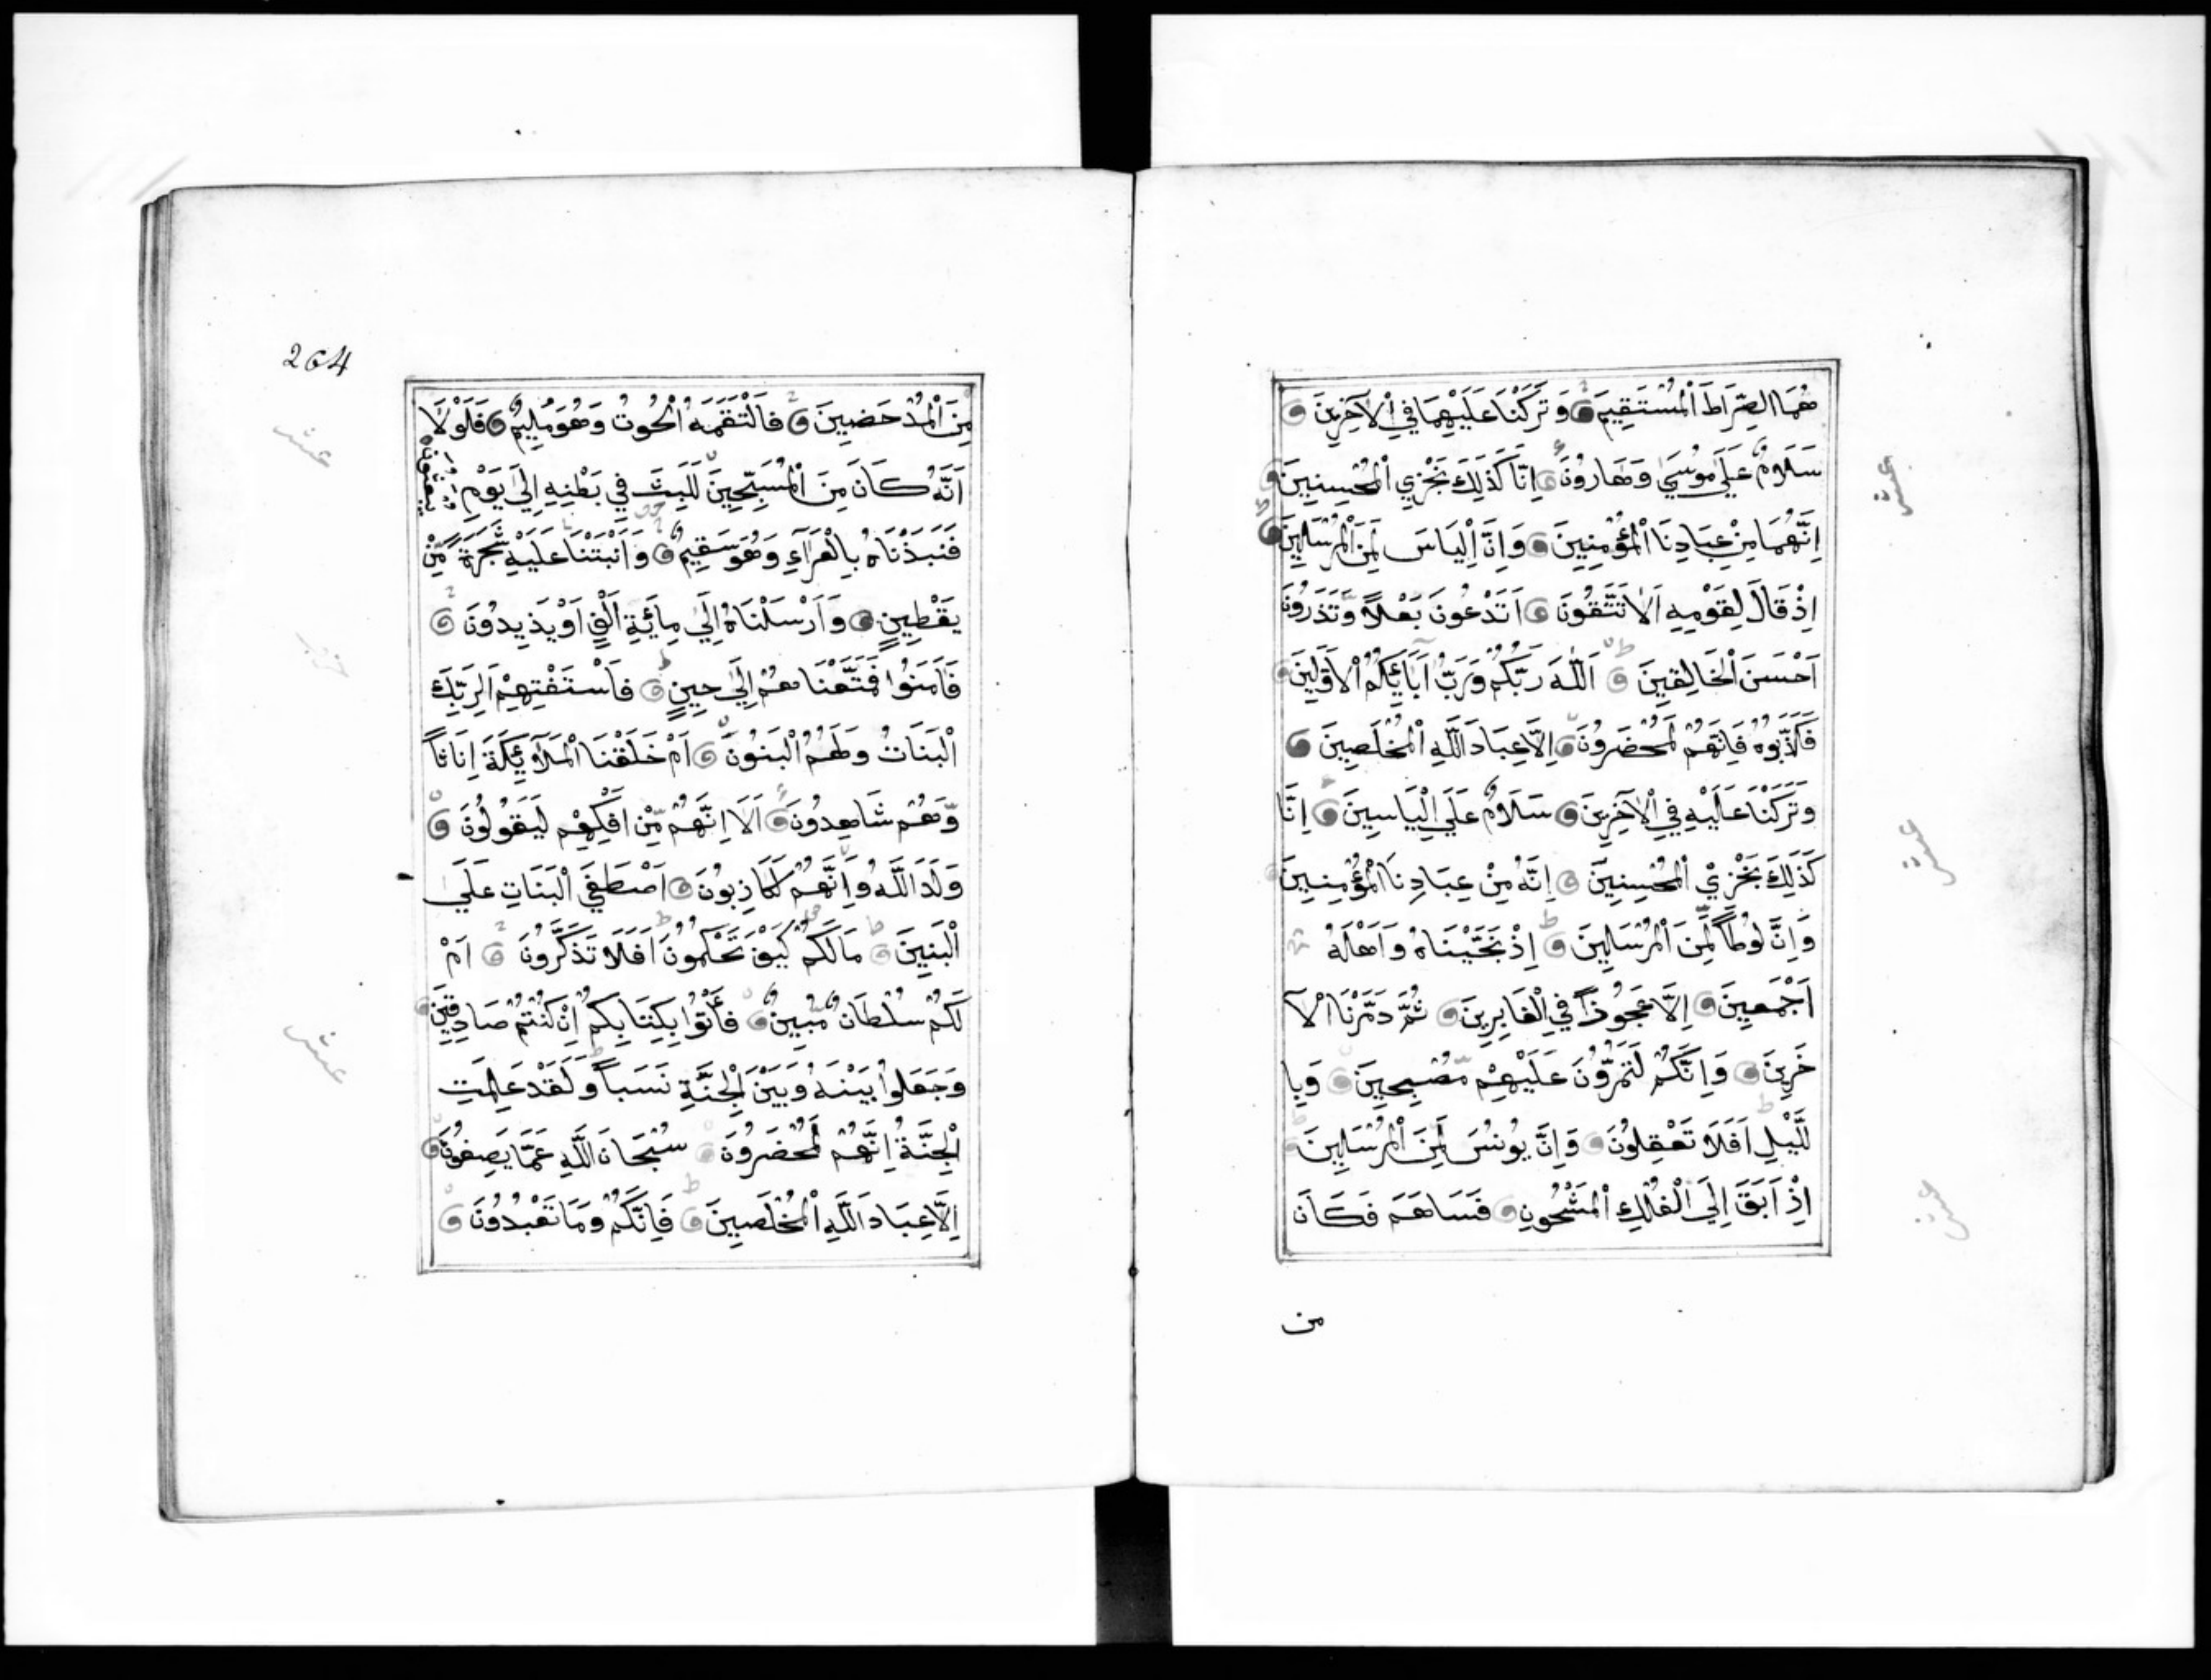 هُمَا الصِّرَاطَ الْمُسْتَقِيمَ وَتَرَكْنَا عَلَيْهِمَا فِي الْآخِرِينَ
سَلَامٌ عَلَى مُوسَى وَهَارُونَ اِنَّا كَذَلِكَ نَجْزِي الْمُحْسِنِينَ
اِنَّهُمَا مِنْ عِبَادِنَا الْمُؤْمِنِينَ وَاِنَّ اِلْيَاسَ لَمِنَ الْمُرْسَلِينَ
اِذْ قَالَ لِقَوْمِهِ اَلَا تَتَّقُونَ اَتَدْعُونَ بَعْلًا وَّتَذَرُونَ
اَحْسَنَ الْخَالِقِينَ اَللَّهَ رَبَّكُمْ وَرَبَّ آبَائِكُمُ الْاَوَّلِينَ
فَكَذَّبُوهُ فَاِنَّهُمْ لَمُحْضَرُونَ اِلَّا عِبَادَ اللَّهِ الْمُخْلَصِينَ
وَتَرَكْنَا عَلَيْهِ فِي الْآخِرِينَ سَلَامٌ عَلَى اِلْيَاسِينَ اِنَّا
كَذَلِكَ نَجْزِيْ الْمُحْسِنِينَ اِنَّهُ مِنْ عِبَادِنَا الْمُؤْمِنِينَ
وَاِنَّ لُوطًا لَّمِنَ الْمُرْسَلِينَ اِذْ نَجَّيْنَاهُ وَاَهْلَهُ
اَجْمَعِينَ اِلَّا عَجُوذًا فِي الْغَابِرِينَ ثُمَّ دَمَّرْنَا الْآ
خَرِينَ وَاِنَّكُمْ لَتَمُرُّونَ عَلَيْهِمْ مُّصْبِحِينَ وَبِا
لَّيْلِ اَفَلَا تَعْقِلُونَ وَاِنَّ يُونُسَ لَمِنَ الْمُرْسَلِينَ
اِذْ اَبَقَ اِلَى الْفُلْكِ الْمَشْحُونِ فَسَاهَمَ فَكَانَ
من
عشر
عشر
عشر
264
مِنَ الْمُدْحَضِينَ فَالْتَقَمَهُ الْحُوتُ وَهُوَ مُلِيمٌ فَلَوْلَا
اَنَّهُ كَانَ مِنَ الْمُسَبِّحِينَ لَلَبِثَ فِي بَطْنِهِ اِلَى يَوْمِ يبعثون
فَنَبَذْنَاهُ بِالْعَرَآءِ وَهُوَ سَقِيمٌ وَاَنْبَتْنَا عَلَيْهِ شَجَرَةً مِّنْ
يَقْطِينٍ وَاَرْسَلْنَاهُ اِلَى مِائَةِ اَلْفٍ اَوْ يَذِيدُونَ
فَآمَنُوا فَمَتَّعْنَاهُمْ اِلَى حِينٍ فَاسْتَفْتِهِمْ اَلِرَبِّكَ
الْبَنَاتُ وَلَهُمُ الْبَنُونَ اَمْ خَلَقْنَا الْمَلَآئِكَةَ اِنَاثًا
وَّهُمْ شَاهِدُونَ اَلَا اِنَّهُمْ مِّنْ اَفْكِهِمْ لَيَقُولُونَ
وَلَدَ اللَّهُ وَاِنَّهُمْ لَكَاذِبُونَ اَصْطَفَى الْبَنَاتِ عَلَى
الْبَنِينَ مَا لَكُمْ كَيْفَ تَحْكُمُونَ اَفَلَا تَذَكَّرُونَ اَمْ
لَكُمْ سُلْطَانٌ مُّبِينٌ فَأْتُوا بِكِتَابِكُمْ اِنْ كُنْتُمْ صَادِقِينَ
وَجَعَلُوا بَيْنَهُ وَبَيْنَ الْجِنَّةِ نَسَبًا وَلَقَدْ عَلِمَتِ
الْجِنَّةُ اِنَّهُمْ لَمُحْضَرُونَ سُبْحَانَ اللَّهِ عَمَّا يَصِفُونَ
اِلَّا عِبَادَ اللَّهِ الْمُخْلَصِينَ فَاِنَّكُمْ وَمَا تَعْبُدُونَ
عشر
عشر